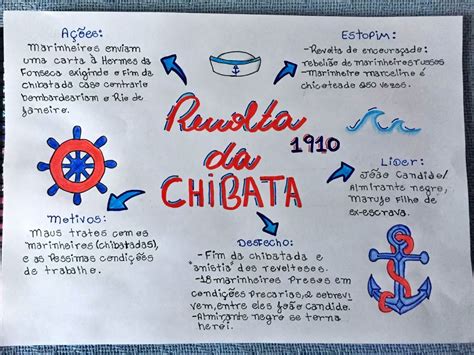 Ações:
Marinheiros enviam
uma carta à Hermes da
Fonseca exigindo o fim da
chibatada caso contrario
bombardeariam o Rio de
Janeiro.
Estopim:
- Revolta de encouraçado:
rebelião de marinheiros russos
- Marinheiro marcelino é
chicoteado 250 vezes.
Revolta
da
CHIBATA
1910
Líder:
João Candido/
Almirante negro,
Marujo filho de
ex-escrava.
Motivos:
Maus tratos com os
marinheiros (chibatadas),
e as Pessimas condições
de trabalho.
Desfecho:
- Fim da chibatada e
"anistia" dos revelteses.
- 18 marinheiros presos em
condições precarias, 2 sobrevi
vem, entre eles João Candido.
- Almirante negro se torna
heroi.